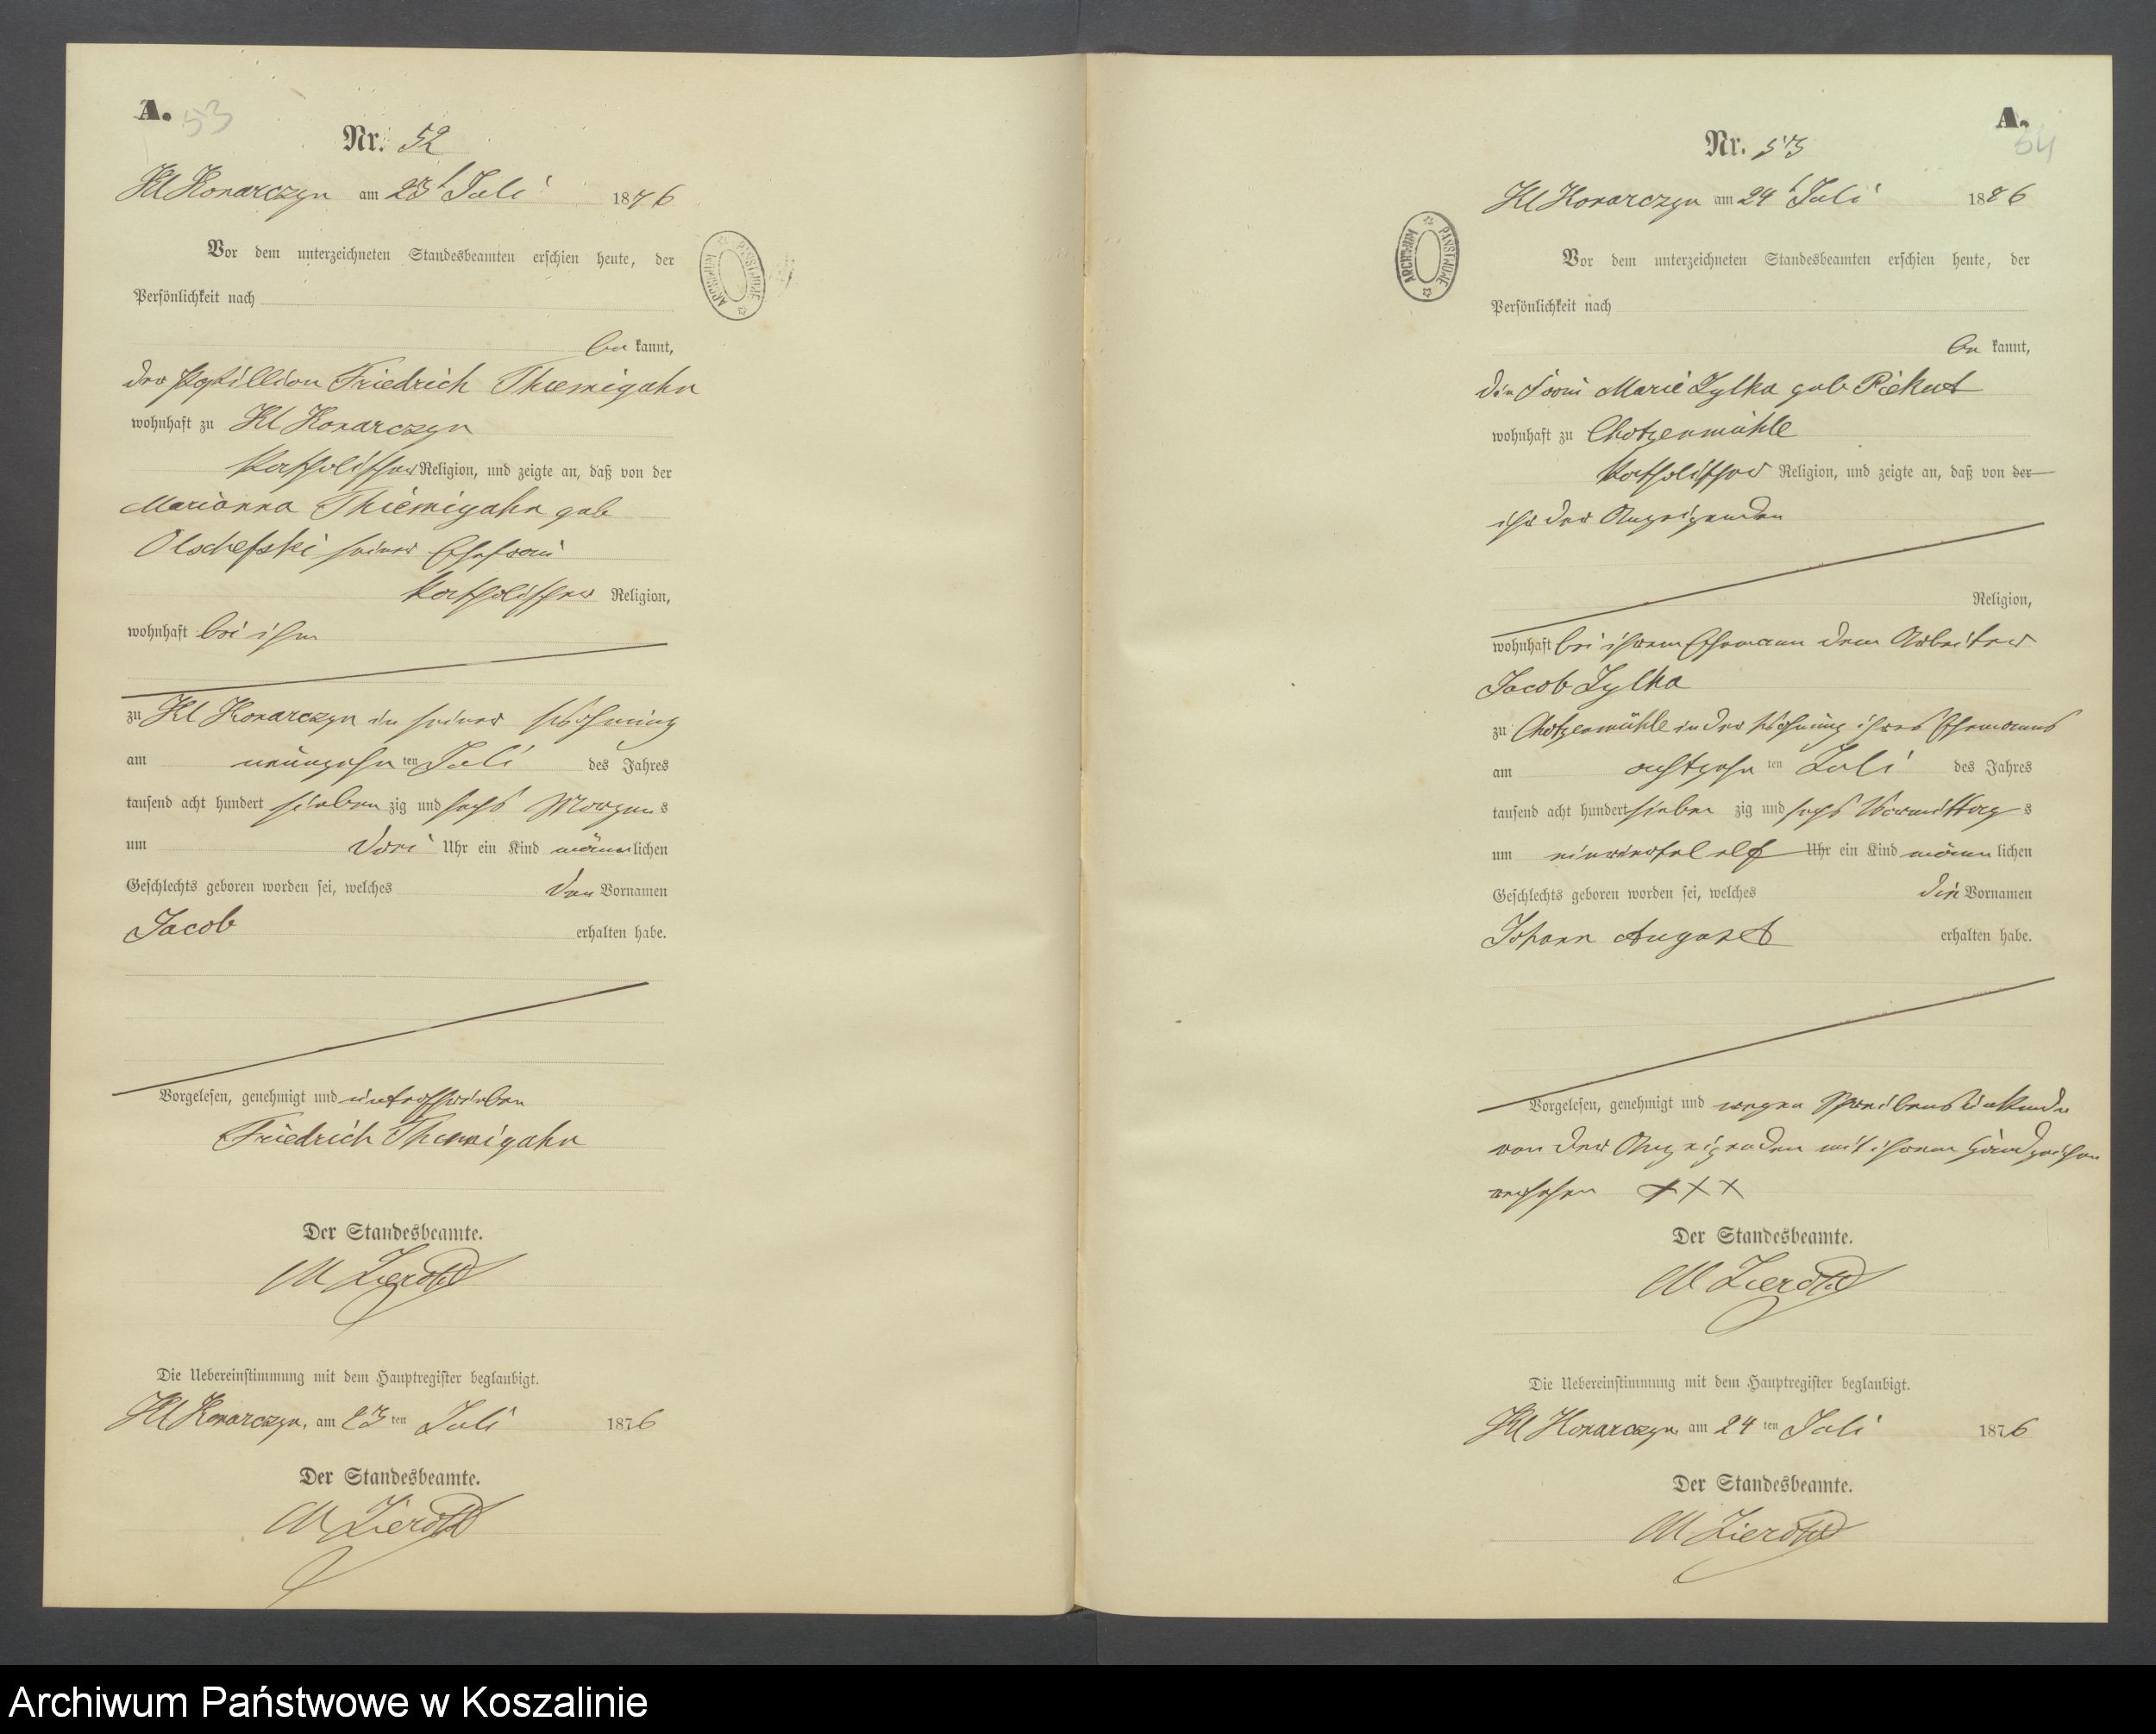 A. 53
Nr. 52
Kl Konarczyn am 23t Juli 1876
Vor dem unterzeichneten Standesbeamten erschien heute, der
Persönlichkeit nach
be kannt,
der Postillion Friedrich Thiemigahn
wohnhaft zu Kl Konarczyn
katholischer Religion, und zeigte an, daß von der
Marianna Thiemigahn geb
Olschefski seiner Ehefrau
katholischer Religion,
wohnhaft bei ihm
zu Kl Konarczyn in seiner Wohnung
am neunzehn ten Juli des Jahres
tausend acht hundert sieben zig und sechs Morgens
um drei Uhr ein Kind männlichen
Geschlechts geboren worden sei, welches den Vornamen
Jacob erhalten habe.
Vorgelesen, genehmigt und unterschrieben
Friedrich Thiemigahn
Der Standesbeamte.
M Zieroth
Die Uebereinstimmung mit dem Hauptregister beglaubigt.
Kl Konarczyn, am 23 ten Juli 1876
Der Standesbeamte.
M Zieroth
ARCHIWUM PAŃSTWOWE
A. 54
Nr. 53
Kl Konarczyn am 24t Juli 1876
Vor dem unterzeichneten Standesbeamten erschien heute, der
Persönlichkeit nach
be kannt,
die Frau Marie Zylka geb Piekut
wohnhaft zu Chotzenmühle
katholischer Religion, und zeigte an, daß von der
ihr der Anzeigenden
Religion,
wohnhaft bei ihrem Ehemann dem Arbeiter
Jacob Zylka
zu Chotzenmühle in der Wohnung ihres Ehemanns
am achtzehn ten Juli des Jahres
tausend acht hundert sieben zig und sechs Vormittag s
um einviertel elf Uhr ein Kind männ lichen
Geschlechts geboren worden sei, welches die Vornamen
Johann August erhalten habe.
Vorgelesen, genehmigt und wegen Schreibensunkunde
von der Anzeigenden mit ihrem Handzeichen
versehen +++
Der Standesbeamte.
M Zieroth
Die Uebereinstimmung mit dem Hauptregister beglaubigt.
Kl Konarczyn, am 24 ten Juli 1876
Der Standesbeamte.
M Zieroth
ARCHIWUM PAŃSTWOWE
Archiwum Państwowe w Koszalinie